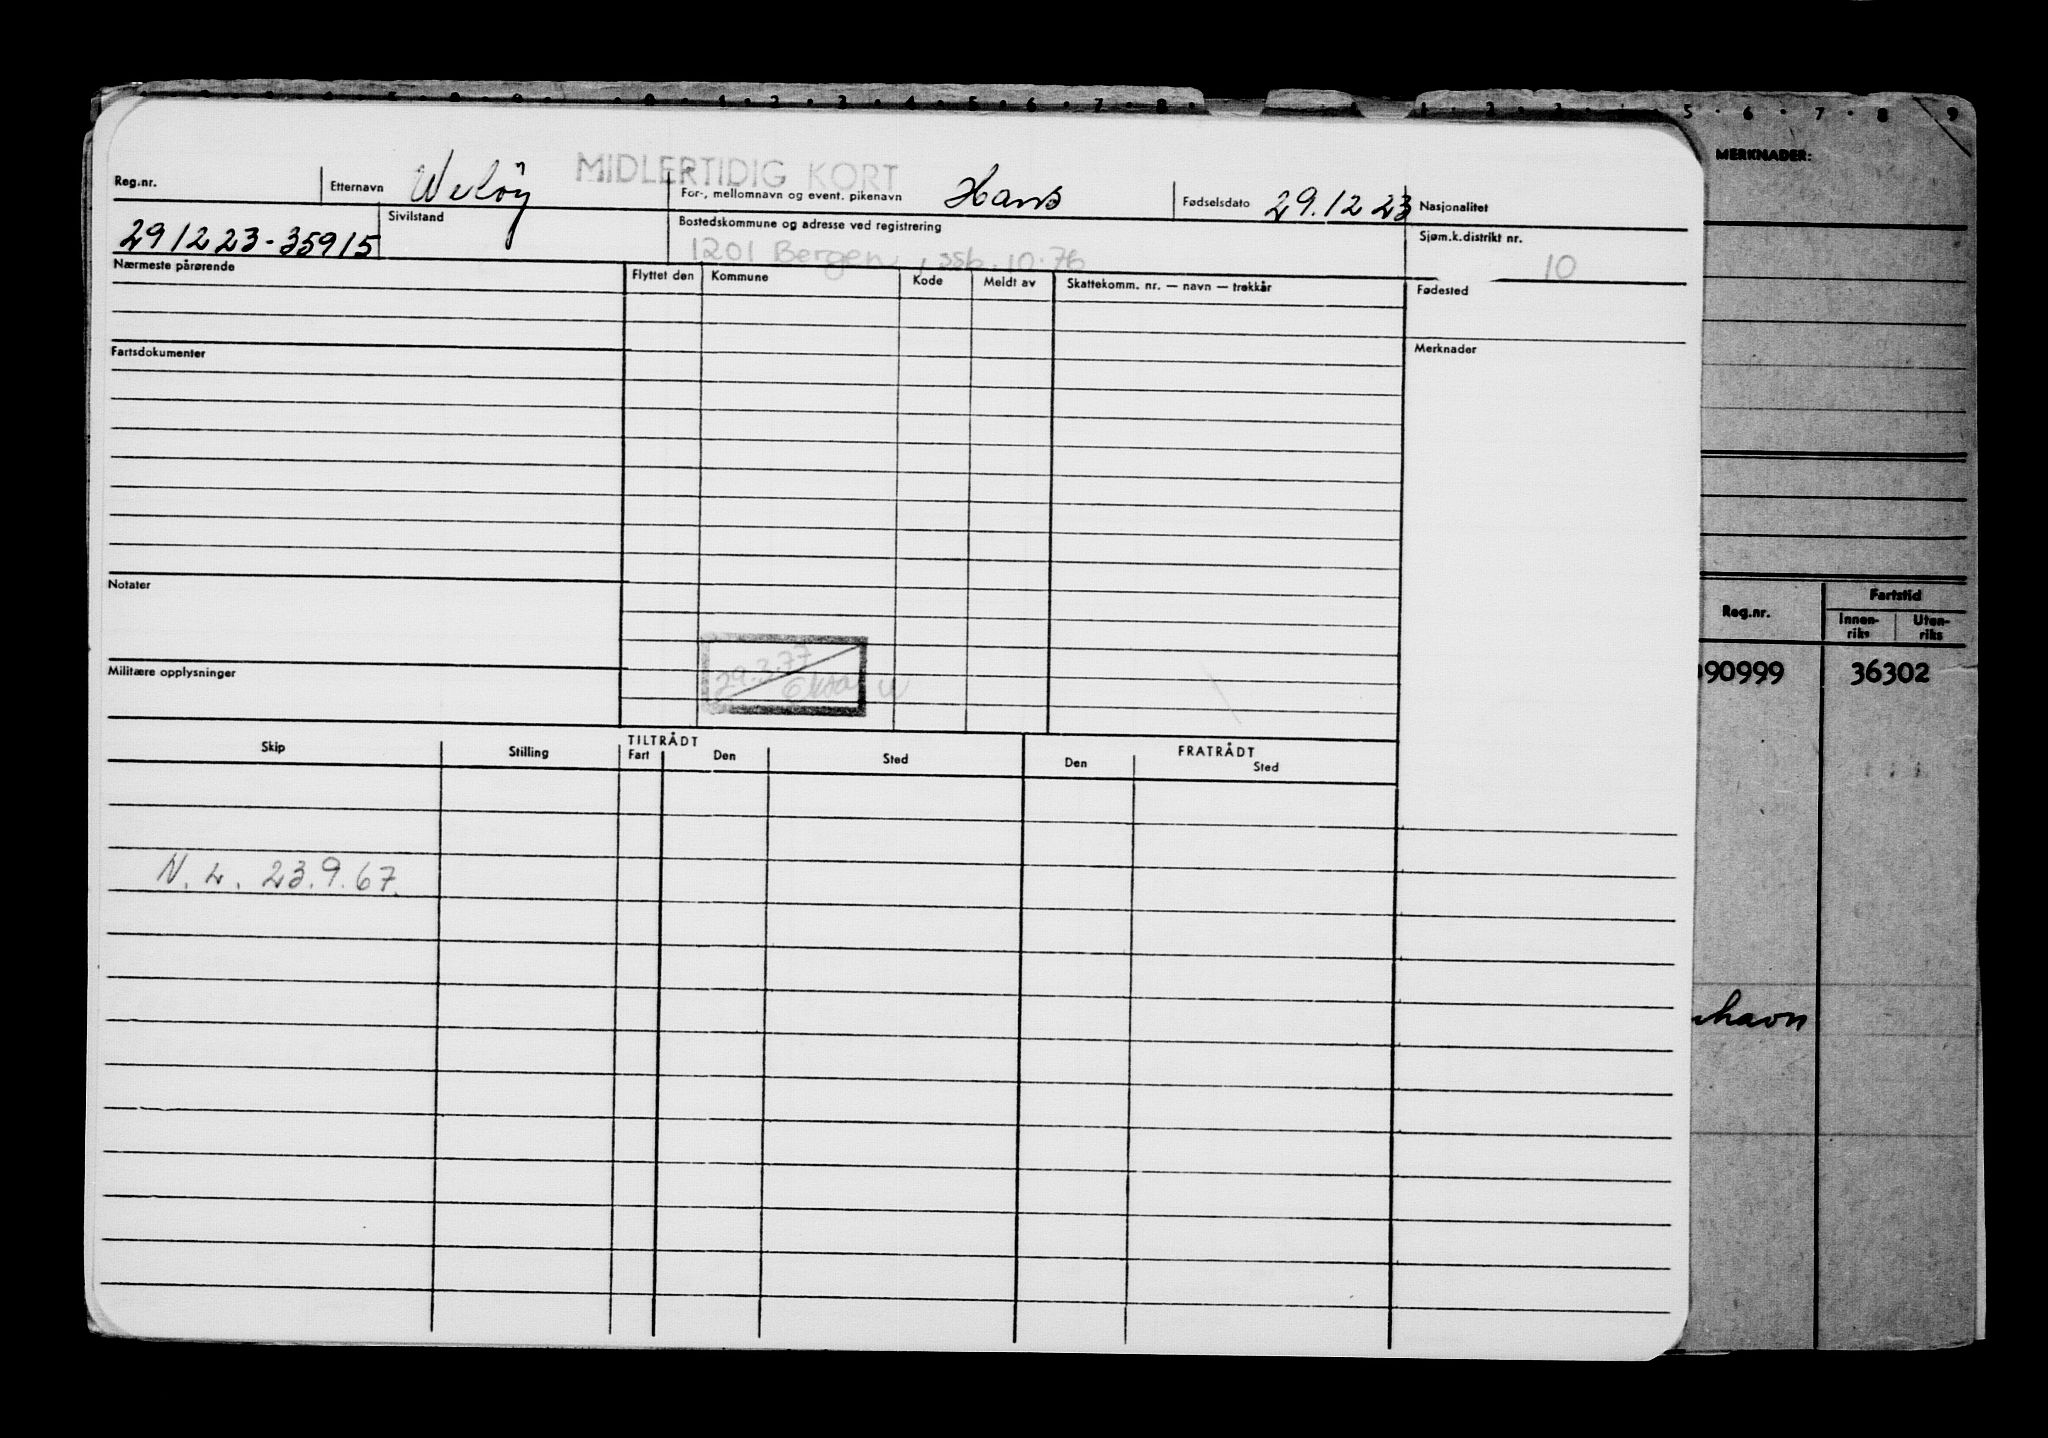 MIDLERTIDIG KORT
MERKNADER:
Reg.nr. Etternavn Weløy For-, mellomnavn og event. pikenavn Hans Fødselsdato 29.12 23 Nasjonalitet
291223-35915 Sivilstand Bostedskommune og adresse ved registrering Sjøm.k.distrikt nr.
1201 Bergen, ssb. 10.76 10
Nærmeste pårørende Flyttet den Kommune Kode Meldt av Skattekomm. nr. — navn — trekkår Fødested
Fartsdokumenter Merknader
Notater
Reg.nr. Fartstid
Innen-riks Uten-riks
Militære opplysninger 29.3.77
90999 36302
Skip Stilling TILTRÅDT Fart Den Sted FRATRÅDT Den Sted
N. L. 23.9.67.
havn